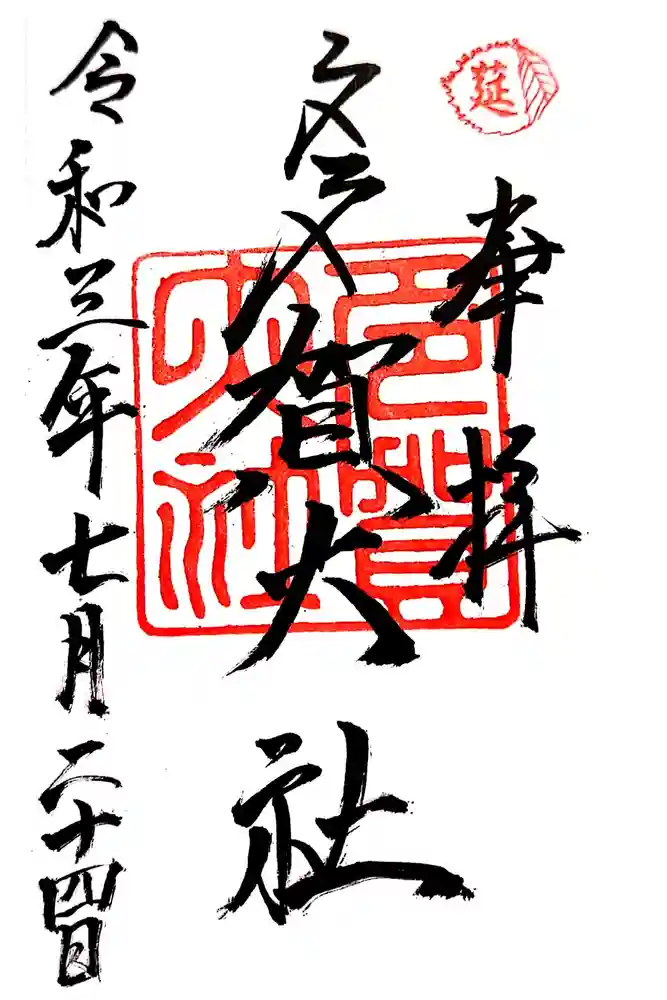 莚
奉拝
多賀大社
多賀
大社
令和三年七月二十四日